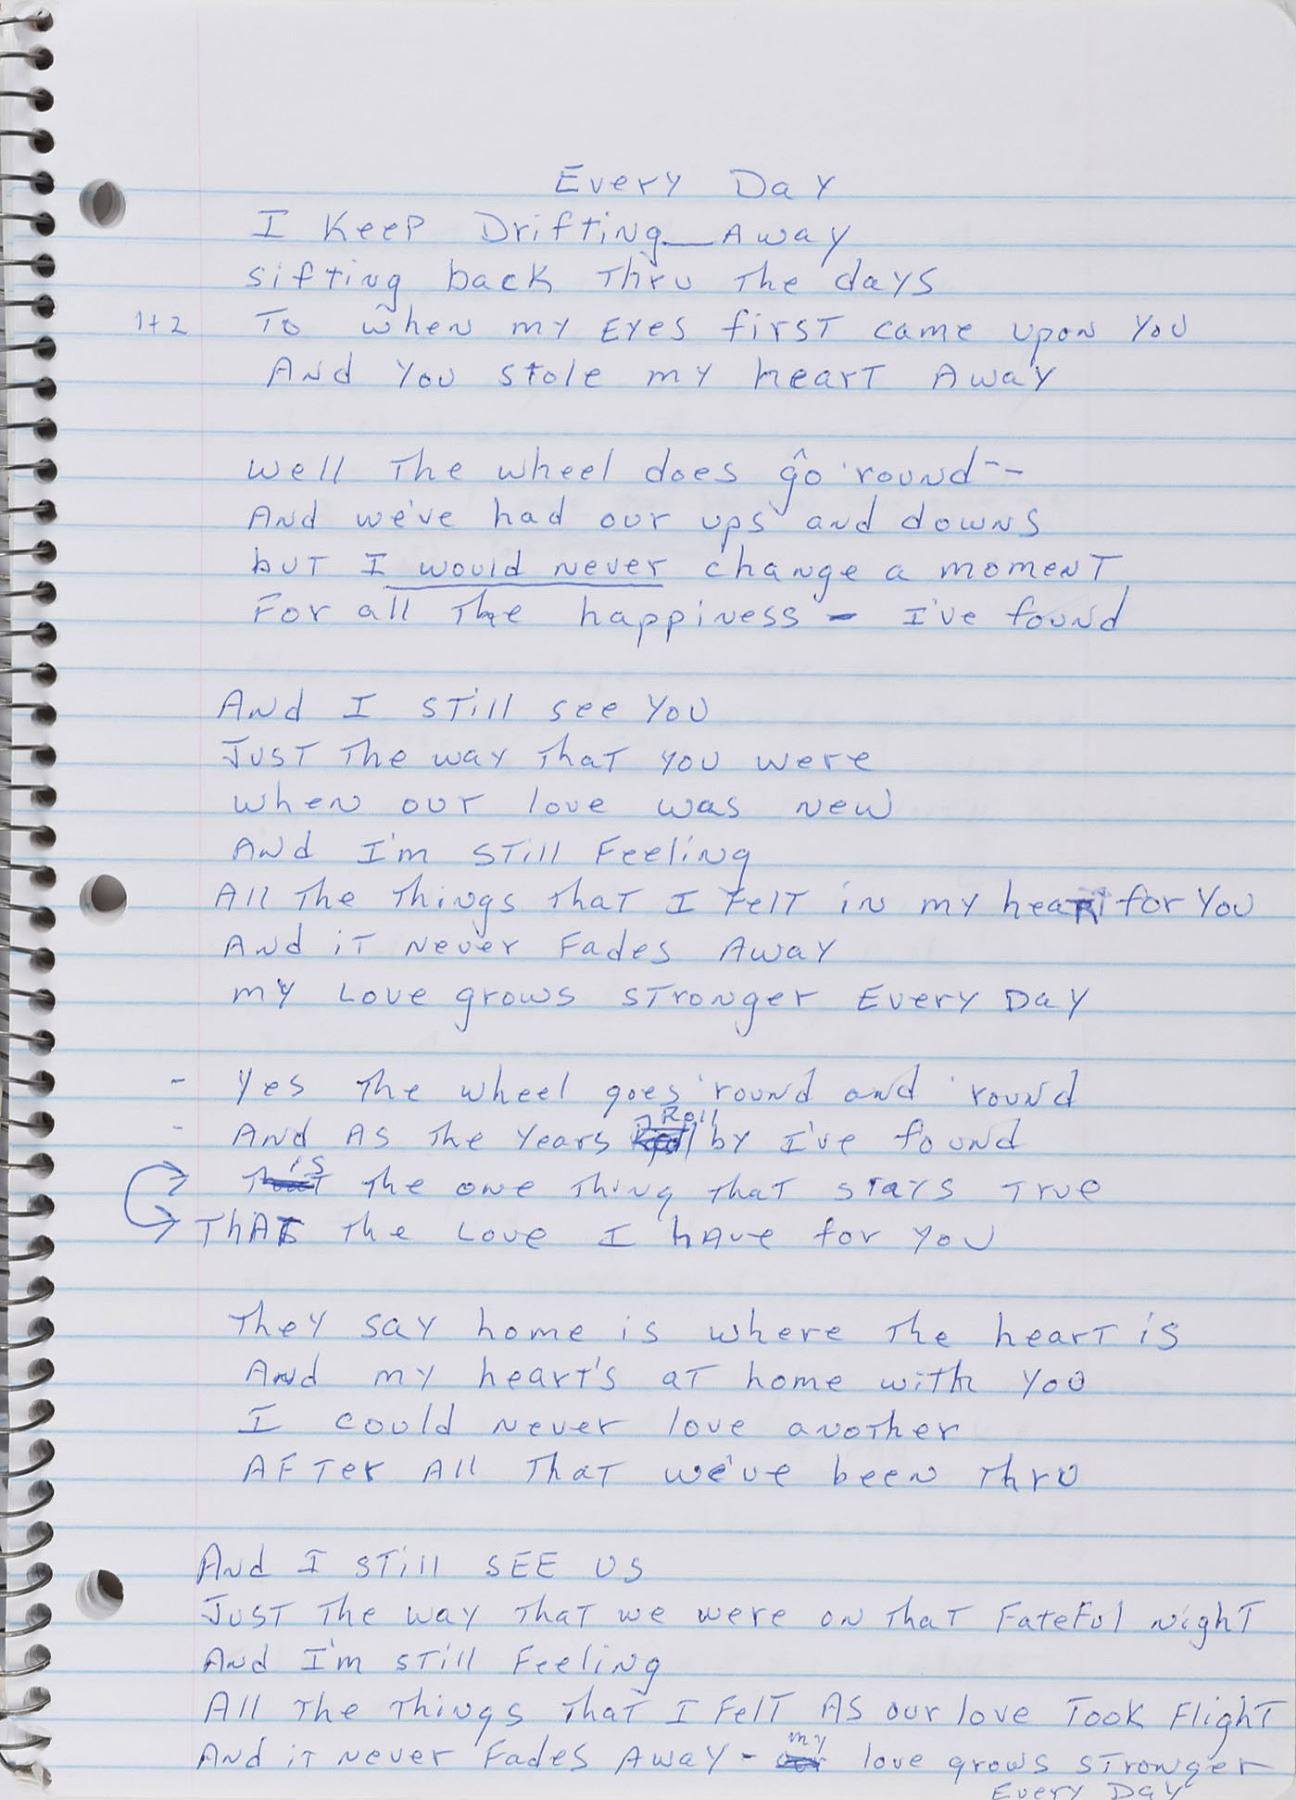 Every Day
I Keep Drifting__Away
sifting back Thru The days
1+2 To when my Eyes first came upon You
And You stole my heart Away
Well The wheel does go 'round --
And we've had our ups and downs
but I would never change a moment
For all The happiness - I've found
And I still see You
Just The way that you were
when our love was new
And I'm still Feeling
All The Things that I felt in my heart for You
And it never Fades Away
my Love grows stronger Every Day
- Yes the wheel goes 'round and 'round
- And As the years Roll by I've found
is the one thing that stays true
That the Love I have for you
They say home is where the heart is
And my heart's at home with you
I could never love another
After All that we've been thru
And I still SEE US
Just the way that we were on that Fateful night
And I'm still Feeling
All the things that I Felt As our love Took Flight
And it never Fades Away - my love grows stronger
Every Day